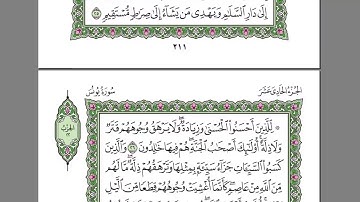 إِلَىٰ دَارِ ٱلسَّلَٰمِ وَيَهْدِى مَن يَشَآءُ إِلَىٰ صِرَٰطٍ مُّسْتَقِيمٍ ٢٥
٢١١
الجزء الحادي عشر
سورة يونس
الحزب ٢٢
۞ لِّلَّذِينَ أَحْسَنُوا۟ ٱلْحُسْنَىٰ وَزِيَادَةٌ وَلَا يَرْهَقُ وُجُوهَهُمْ قَتَرٌ
وَلَا ذِلَّةٌ أُو۟لَٰٓئِكَ أَصْحَٰبُ ٱلْجَنَّةِ هُمْ فِيهَا خَٰلِدُونَ ٢٦ وَٱلَّذِينَ
كَسَبُوا۟ ٱلسَّيِّـَٔاتِ جَزَآءُ سَيِّئَةٍۭ بِمِثْلِهَا وَتَرْهَقُهُمْ ذِلَّةٌ مَّا لَهُم
مِّنَ ٱللَّهِ مِنْ عَاصِمٍ كَأَنَّمَآ أُغْشِيَتْ وُجُوهُهُمْ قِطَعًا مِّنَ ٱلَّيْلِ